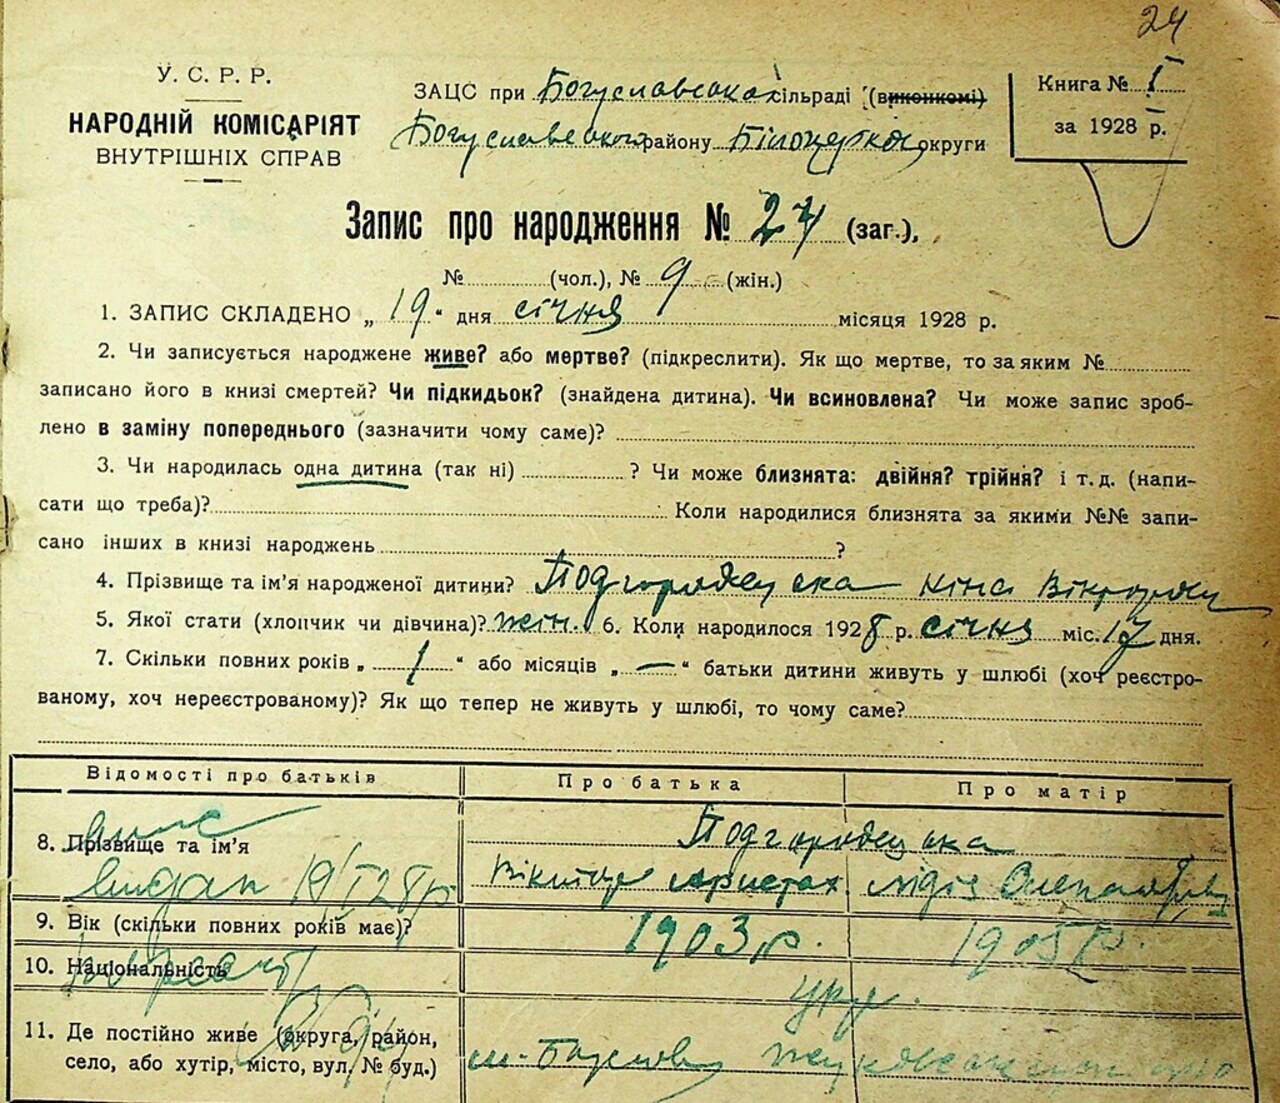 24
У. С. Р. Р.
НАРОДНІЙ КОМІСАРІЯТ
ВНУТРІШНІХ СПРАВ
ЗАЦС при Богуславській сільраді (виконкомі)
Богуславського району Білоцерков округи
Книга № I
за 1928 р.
Запис про народження № 24 (заг.),
№ (чол.), № 9 (жін.)
1. ЗАПИС СКЛАДЕНО „ 19 “ дня січня місяця 1928 р.
2. Чи записується народжене живе? або мертве? (підкреслити). Як що мертве, то за яким №
записано його в книзі смертей? Чи підкидьок? (знайдена дитина). Чи всиновлена? Чи може запис зроб-
лено в заміну попереднього (зазначити чому саме)?
3. Чи народилась одна дитина (так ні) ? Чи може близнята: двійня? трійня? і т. д. (напи-
сати що треба)? Коли народилися близнята за якими №№ запи-
сано інших в книзі народжень ?
4. Прізвище та ім’я народженої дитини? Подгородецька Ніна Вікторов
5. Якої стати (хлопчик чи дівчина)? жін. 6. Коли народилося 1928 р. січня міс. 17 дня.
7. Скільки повних років „ 1 “ або місяців „ — “ батьки дитини живуть у шлюбі (хоч реєстро-
ваному, хоч нереєстрованому)? Як що тепер не живуть у шлюбі, то чому саме?
Відомості про батьків
Про батька
Про матір
8. Прізвище та ім’я
Подгородецька
видан 19/I 28 р
Віктор Аристах. Лідія Олександров
9. Вік (скільки повних років має)?
1903 р.
1905 р.
10. Національність
укр.
11. Де постійно живе (округа, район,
село, або хутір, місто, вул. № буд.)
м. Богуслав